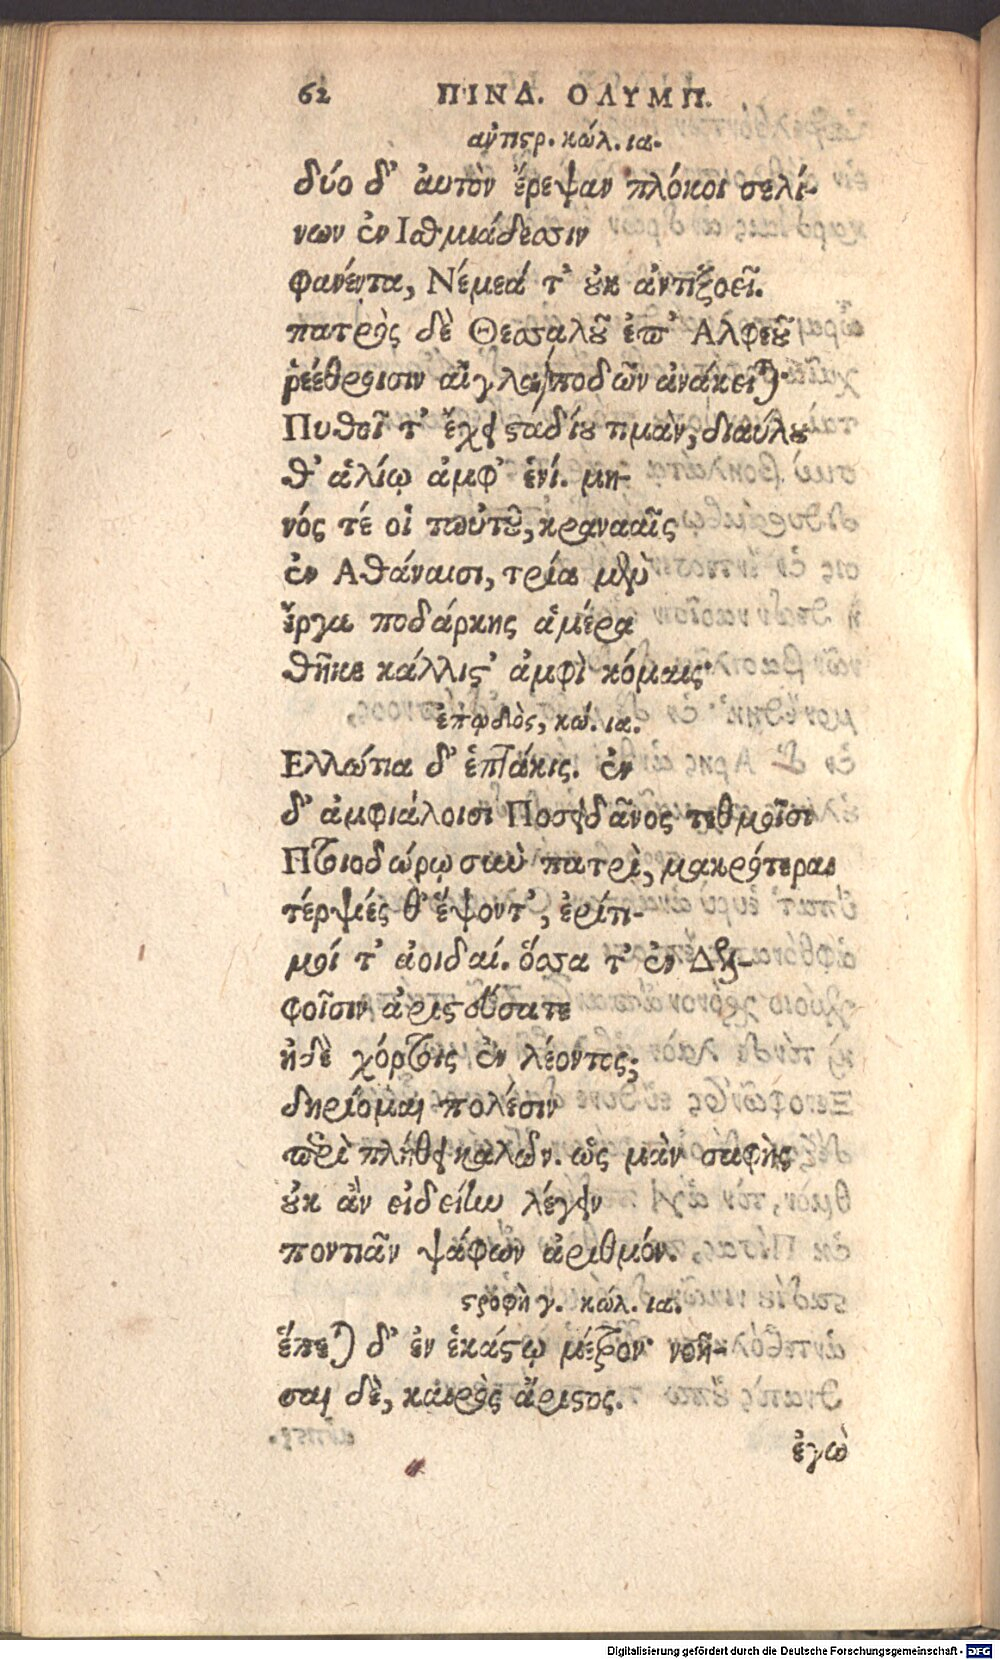 62 ΠΙΝΔ. ΟΛΥΜΠ.
ἀντιστρ. κώλ. ια.
δύο δ' ἀυτὸν ἔρεψαν πλόκοι σελί-
νων ἐν Ισθμιάδεσσιν
φανέντα, Νέμεά τ' οὐκ ἀντιξοεῖ.
πατρὸς δὲ Θεσσαλοῦ ἐπ' Αλφεοῦ
ῥεέθροισιν αἴγλα ποδῶν ἀνάκειται.
Πυθοῖ τ' ἔχει σταδίου τιμὰν, διαύλου
θ' ἁλίῳ ἀμφ' ἑνί. μη-
νός τέ οἱ τωὐτοῦ, κρανααῖς
ἐν Αθάναισι, τρία μὲν
ἔργα ποδάρκης ἁμέρα
θῆκε κάλλιστ' ἀμφὶ κόμαις·
ἐπῳδὸς, κώ. ια.
Ελλώτια δ' ἑπτάκις. ἐν
δ' ἀμφιάλοισι Ποσειδᾶνος τεθμοῖσι
Πτοιοδώρῳ σὺν πατρὶ, μακρότεραι
τέρψιές θ' ἕψοντ', ἐρίτι-
μοί τ' ἀοιδαί. ὅσσα τ' ἐν Δελ-
φοῖσιν ἀριστεύσατε
ἠδὲ χόρτοις ἐν λέοντος;
δηρίομαι πολέσιν
περὶ πλήθει καλῶν. ὡς μὰν σαφὴς
οὐκ ἂν εἰδείην λέγειν
ποντιᾶν ψάφων ἀριθμόν.
στροφὴ γ. κώλ. ια.
ἕπεται δ' ἐν ἑκάστῳ μέτρον· νοῆ-
σαι δὲ, καιρὸς ἄριστος.
ἐγὼ
Digitalisierung gefördert durch die Deutsche Forschungsgemeinschaft - DFG